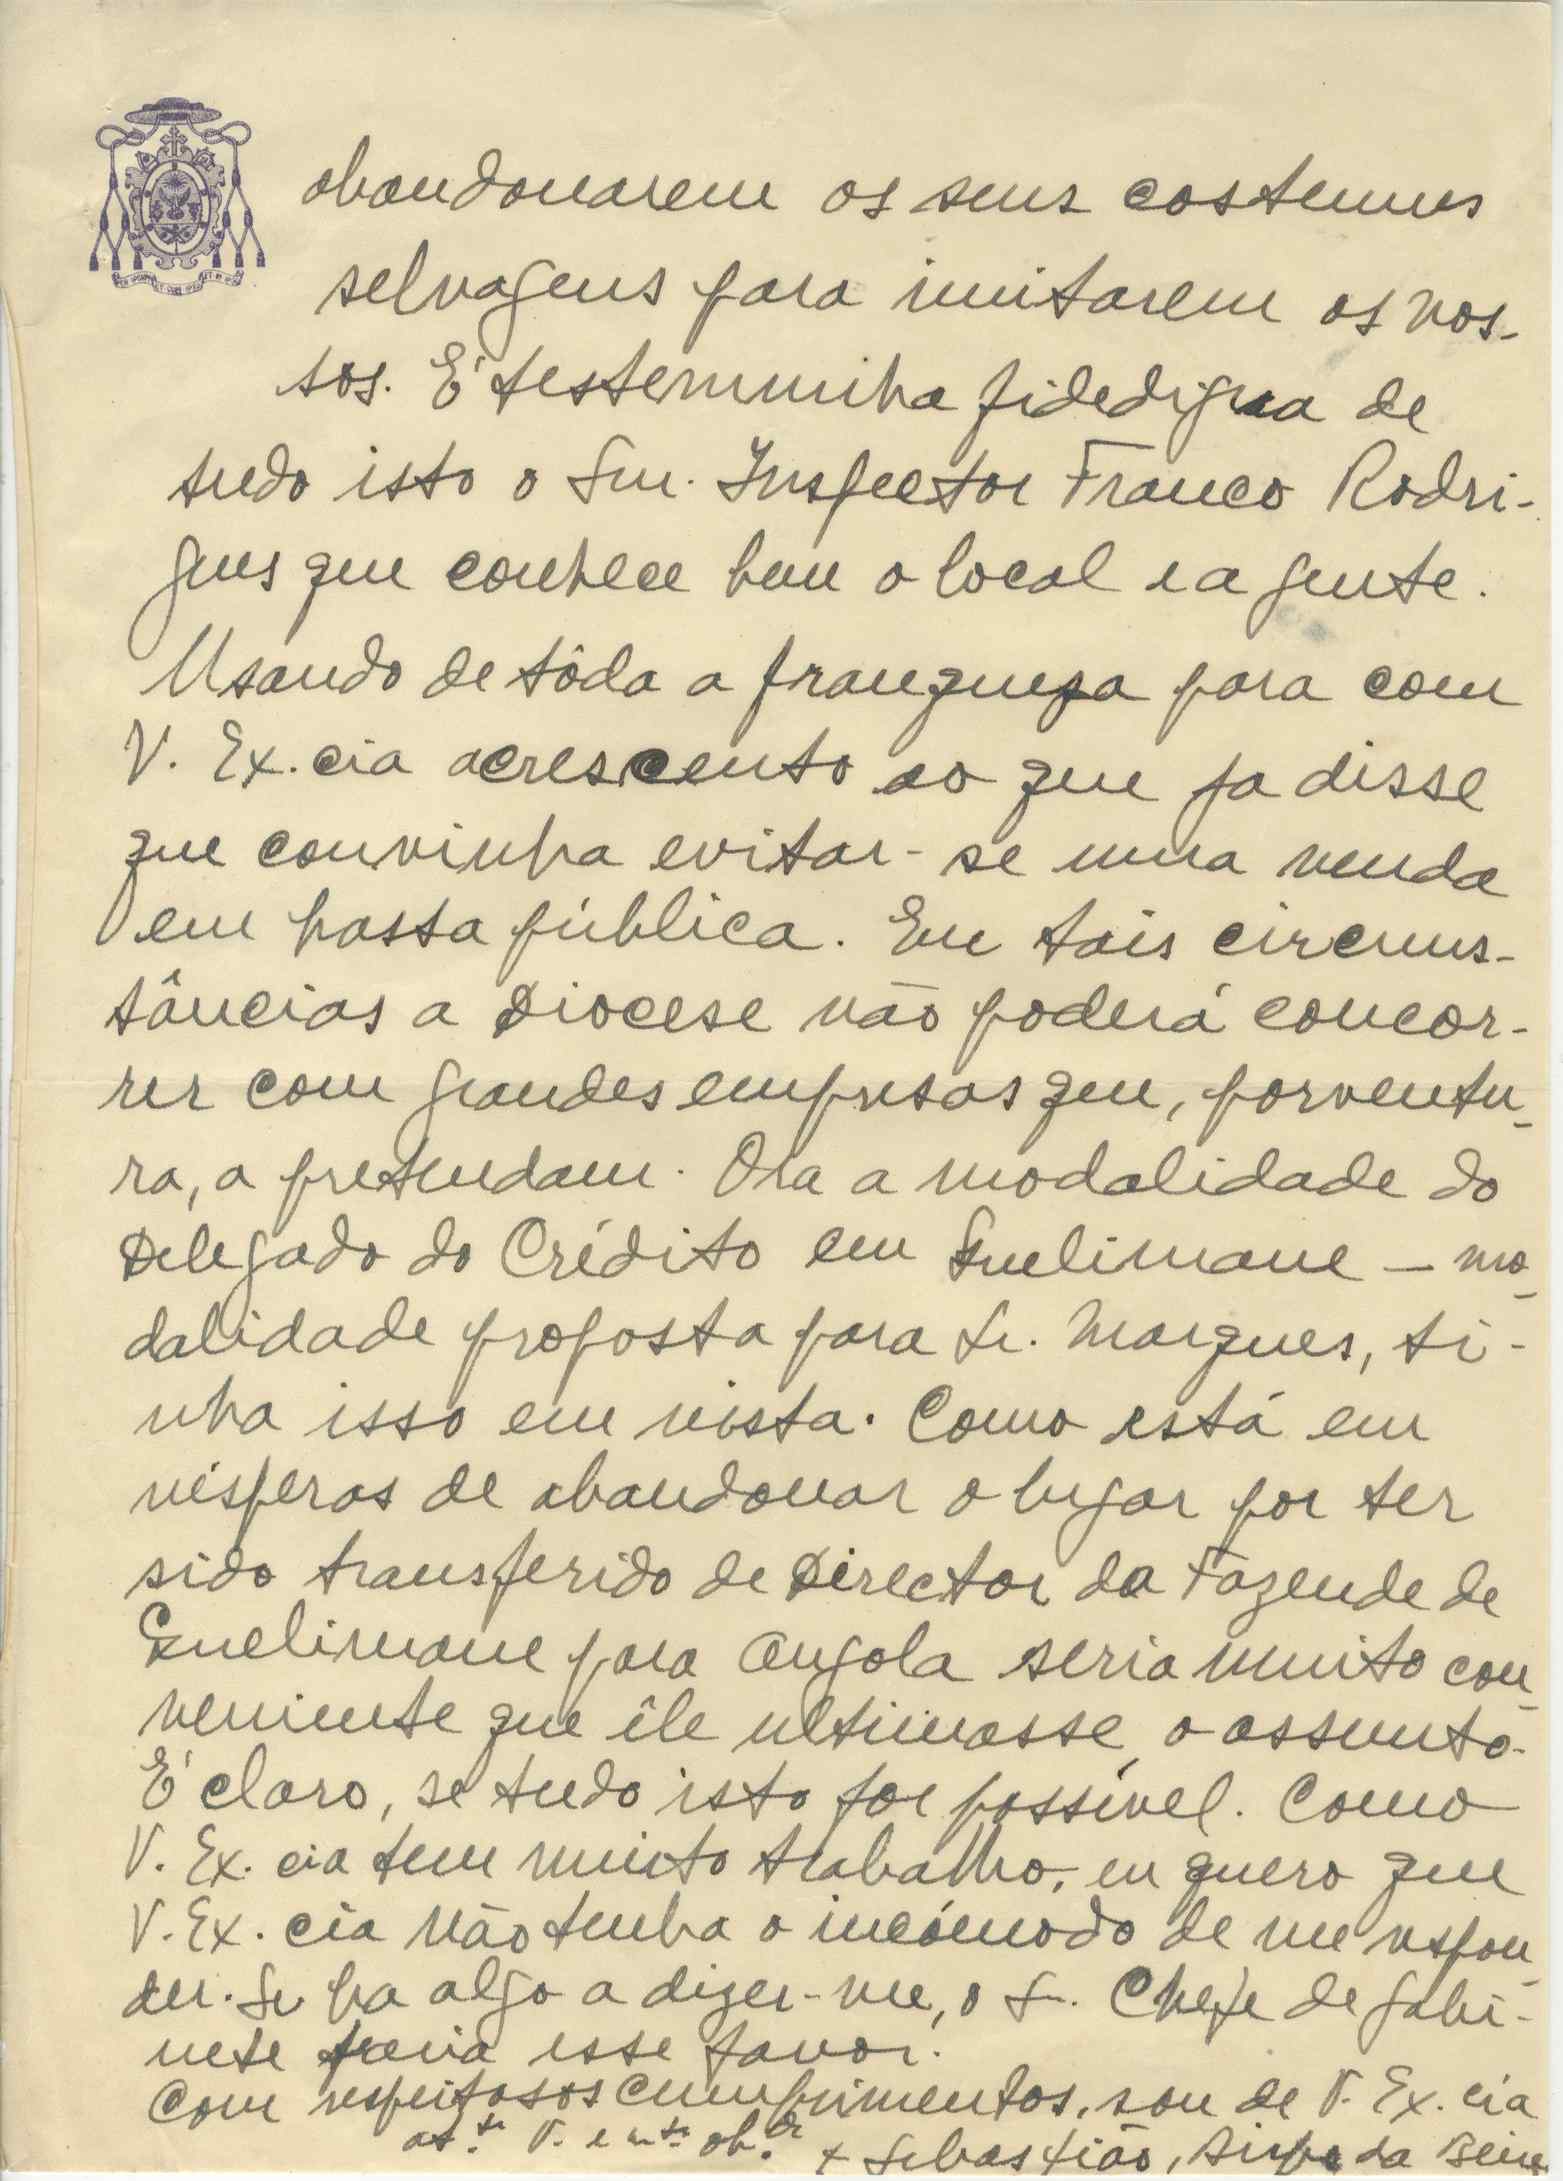 abandonarem os seus costumes
selvagens para imitarem os nos-
sos. É testemunha fidedigna de
tudo isto o Snr. Inspector Franco Rodri-
gues que conhece bem o local e a gente.
Usando de tôda a franqueza para com
V. Ex.cia acrescento ao que ja disse
que convinha evitar-se uma venda
em hasta pública. Em tais circuns-
tâncias a Diocese não poderá concor-
rer com grandes empresas que, porventu-
ra, a pretendam. Ora a modalidade do
Delegado do Crédito em Quelimane — mo-
dalidade proposta para Sr. Marques, ti-
nha isso em vista. Como está em
vésperas de abandonar o lugar por ter
sido transferido de Director da Fazenda de
Quelimane para Angola seria muito con-
veniente que êle ultimasse o assunto.
É claro, se tudo isto for possível. Como
V. Ex. cia tem muito trabalho, eu quero que
V. Ex. cia não tenha o incómodo de me respon-
der. Se ha algo a dizer-me, o Sr. Chefe de Gabi-
nete faria esse favor.
Com respeitosos cumprimentos, sou de V. Ex. cia
at.te V. e obr.
+ Sebastião, Bispo da Beira